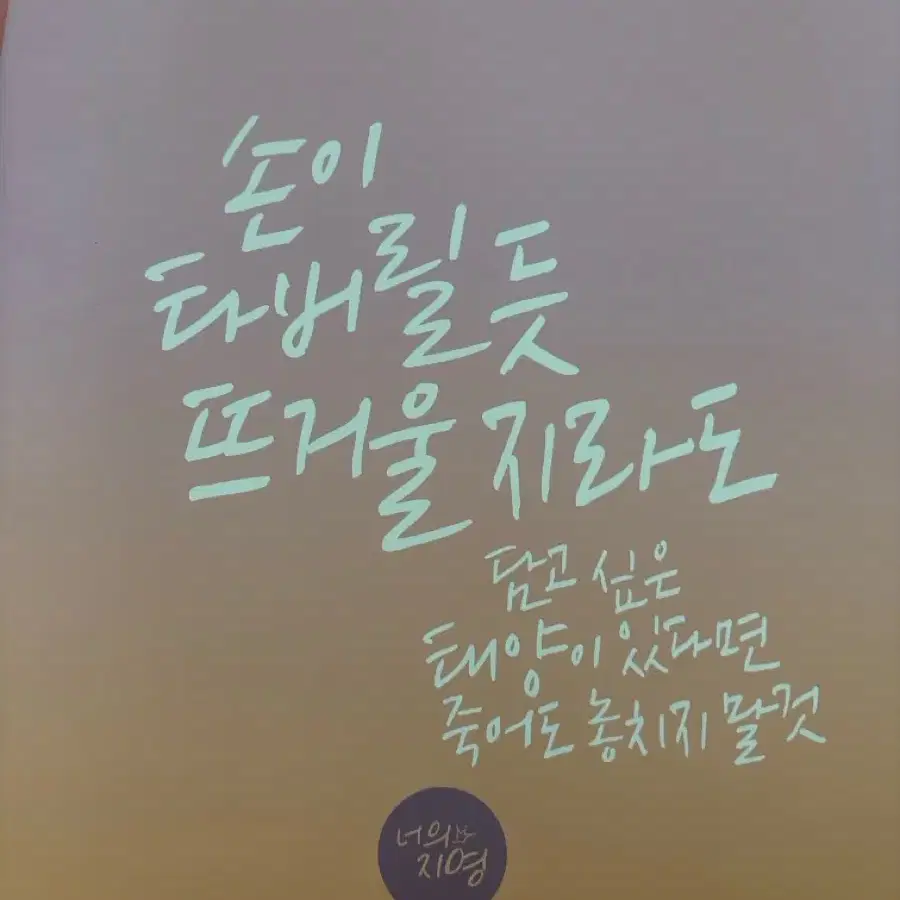 손이
타버릴 듯
뜨거울지라도
담고 싶은
태양이 있다면
죽어도 놓치지 말 것
너의
지영